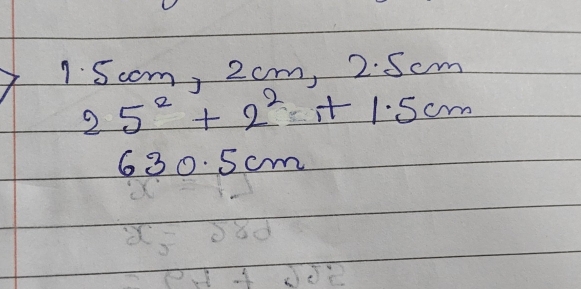 1.5cm, 2cm, 2.5cm
25² + 2² + 1.5cm
630.5cm